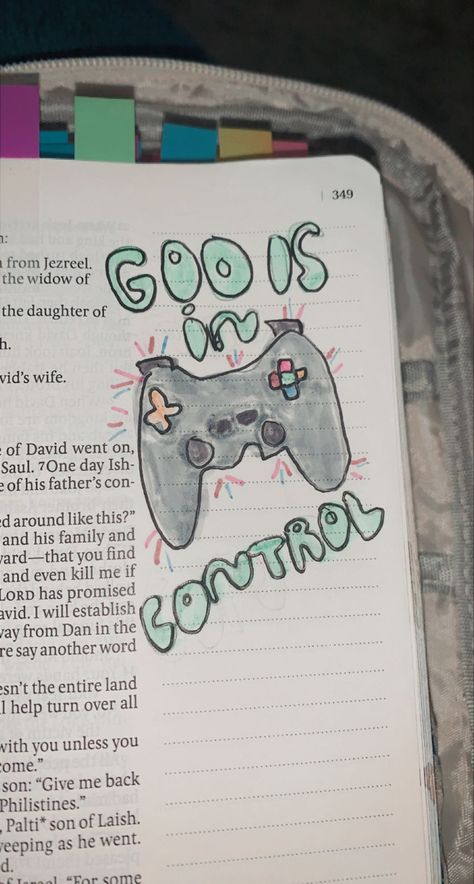 349
GOD IS
in
CONTROL
n:
from Jezreel.
the widow of
the daughter of
h.
vid's wife.
of David went on,
Saul. 7One day Ish-
e of his father's con-
ed around like this?"
and his family and
vard—that you find
and even kill me if
LORD has promised
avid. I will establish
way from Dan in the
re say another word
esn't the entire land
l help turn over all
with you unless you
come."
son: "Give me back
Philistines."
, Palti* son of Laish.
eeping as he went.
d.
of Israel. "For some